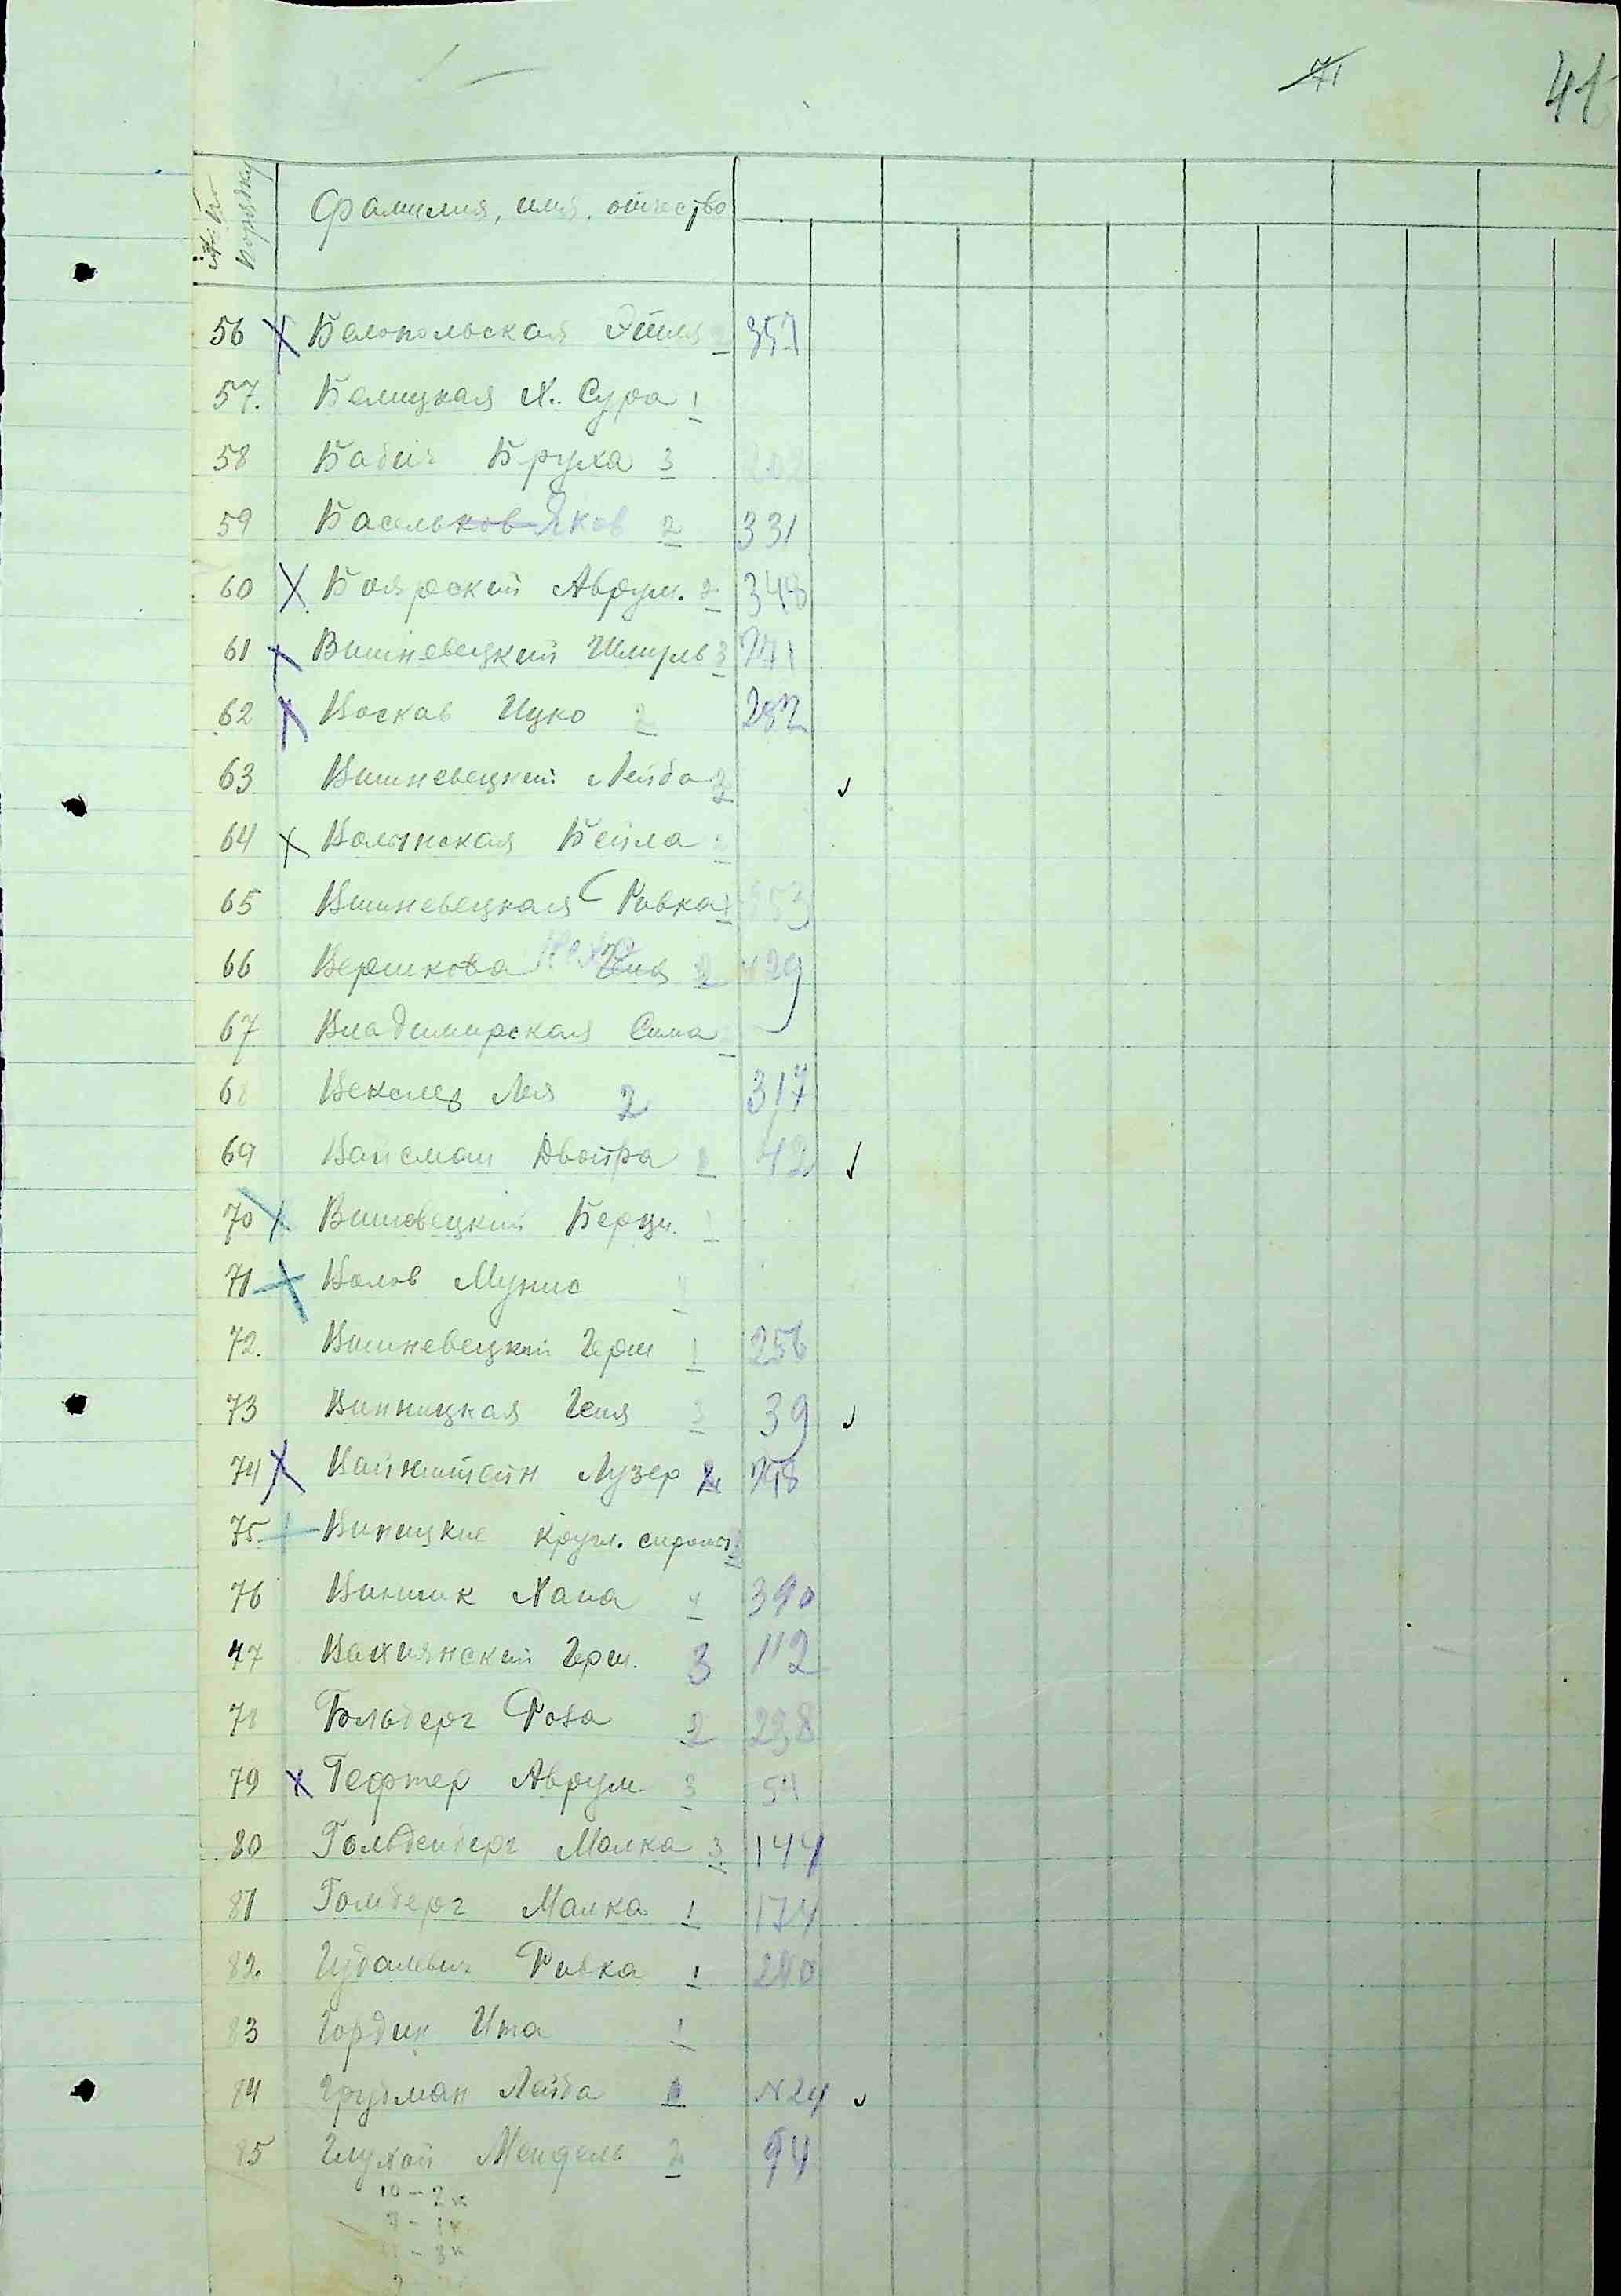 71 41
№№ по порядку Фамилия, имя, отчество
56 X Белопольская Этля 357
57. Белицкая Х. Сура 1
58 Бабич Бруха 3
59 Басельков Яков 2 331
60 X Боярский Аврум. 2 348
61 X Вишневецкий Шмуль 3
62 X Восков Ицко 2
63 Вишневецкий Лейба 2 ✓
64 X Волынская Бейла
65 Вишневецкая Ривка
66 Вершкова 2 29
67 Владимирская Сима
68 Векслер Лея 2 317
69 Вайсман Двойра 42 ✓
70 X Вишовецкий Берци. 1
71 X Волов Мунис
72. Вишневецкий Герш 1 256
73 Винницкая Геня 3 39 ✓
74 X Вайнштейн Лузер 2
75 Виницкие кругл. сироты
76 Винник Хана 390
77 Вахнянский Герш. 3 112
78 Гольдберг Роза 2 238
79 X Гефтер Аврум 3 54
80 Гольденберг Малка 3 144
81 Гольдберг Малка 1 174
82. Гудалевич Ривка 1 240
83 Гордин Ита 1
84 Грубман Лейба N 24 ✓
85 Глухой Мендель 2 94
10 – 2 к
7 – 1 к
– 3 к